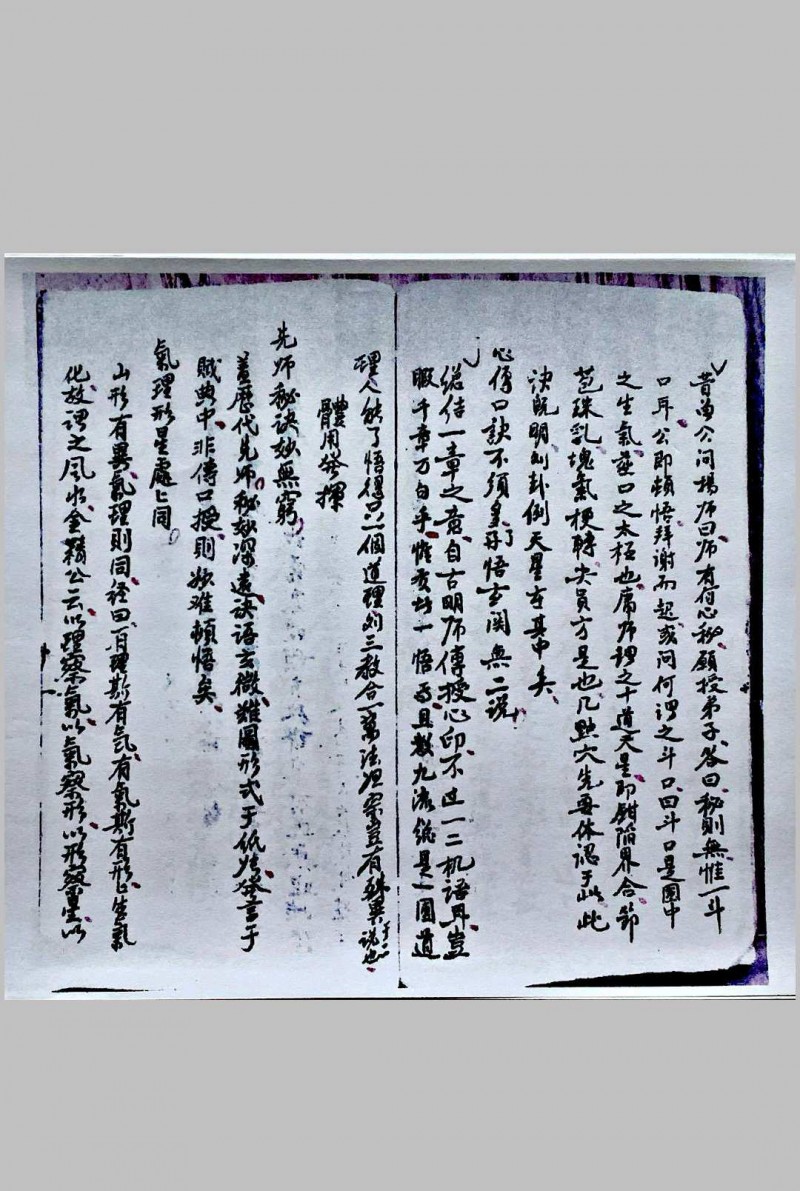 昔曾公问楊师曰师有何心秘願授弟子答曰秘則無惟一斗
口耳公即頓悟拜谢而起或问何谓之斗口曰斗口是圈中
之生氣並口之太極也廖师谓之十道天星即鉗陷界合節
苞珠乳塊氣梗轉尖員方是也凡點穴先要体認于此此
訣既明則卦倒天星在其中矣
心傳口訣不須多了悟玄関無二説
總结一章之意自古明师傳授心印不过一二机語耳豈
暇千章万句乎惟友此一悟而且教九流総是一個道
理人能了悟得只一個道理则三教合一萬法归宗豈有殊異于二説也
體用發揮
先师秘訣妙無窮
盖歷代先师秘妙深遠訣語玄微難圖形式于紙始發言于
賦典中非傳口授則妙难頓悟矣
氣理形星處ヒ同
山形有異氣理則同绘曰有理斯有氣有氣斯有形ヒ生氣
化故谓之风水金精公云以理察氣以氣察形以形察星以